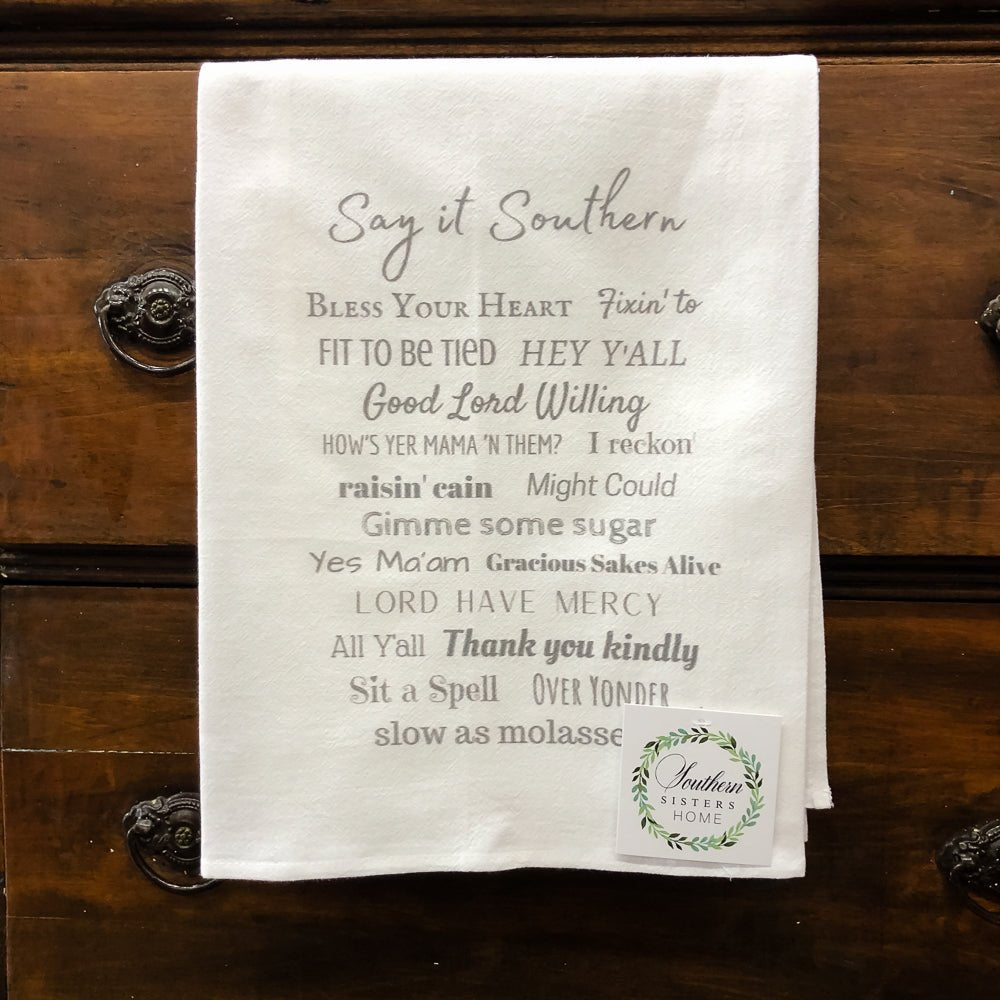 Say it Southern
BLESS YOUR HEART Fixin' to
FIT TO BE TIED HEY Y'ALL
Good Lord Willing
HOW'S YER MAMA 'N THEM? I reckon'
raisin' cain Might Could
Gimme some sugar
Yes Ma'am Gracious Sakes Alive
LORD HAVE MERCY
All Y'all Thank you kindly
Sit a Spell OVER YONDER
slow as molasse
Southern
SISTERS
HOME